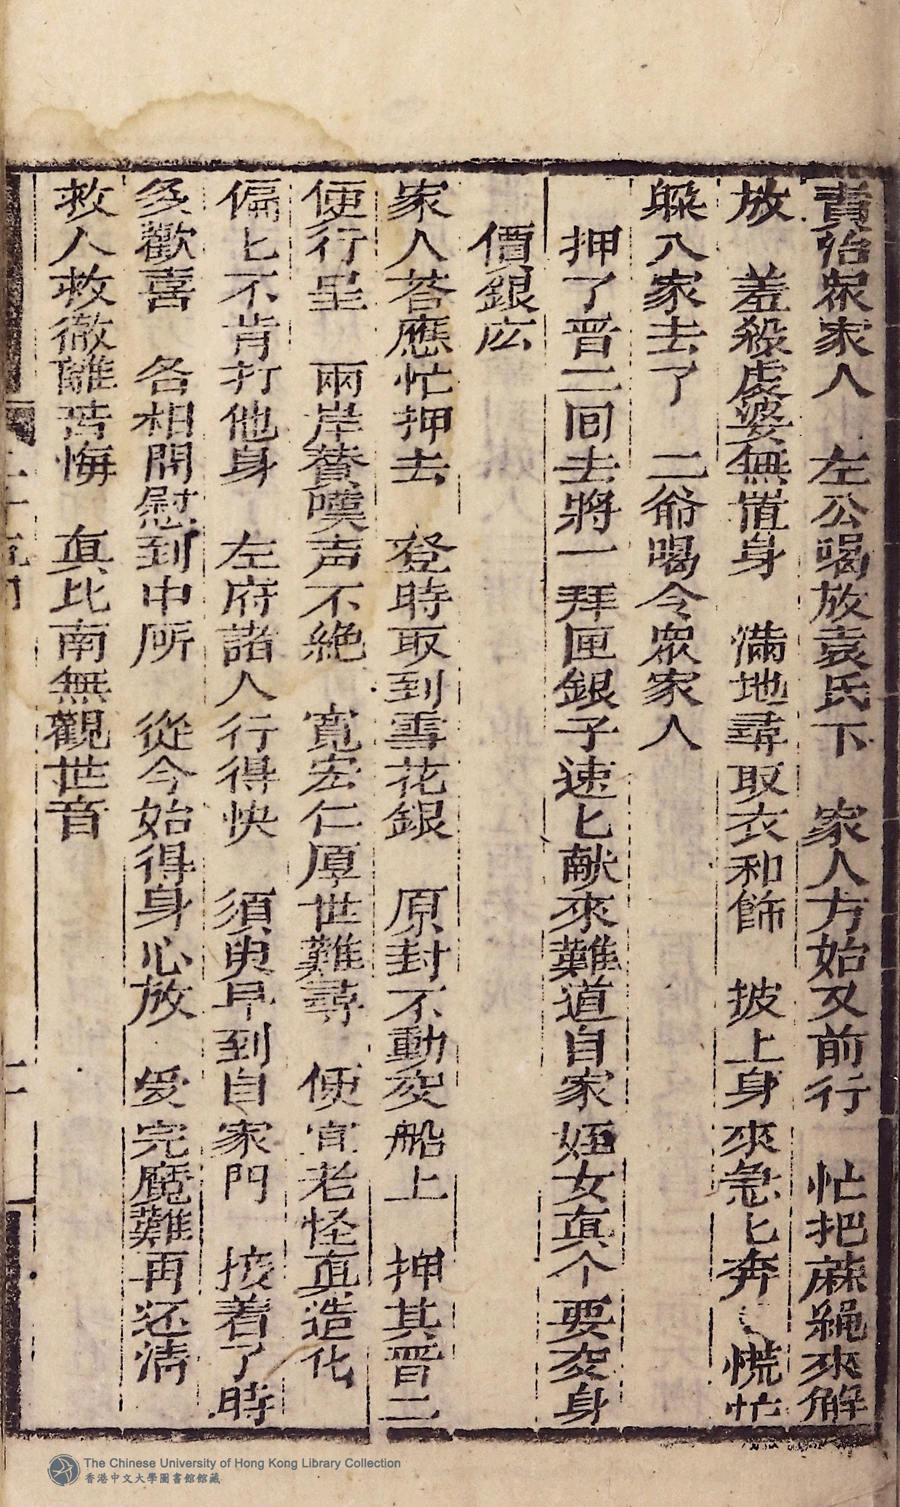 責治衆家人　左公喝放袁氏下　家人方始又前行　忙把蔴繩來解
放　羞殺虔婆無置身　滿地尋取衣和飾　披上身來急匕奔　慌忙
躱入家去了　二爺喝令衆家人
押了晋二囬去將一拜匣銀子速匕献來難道自家姪女真个要交身
價銀庅
家人荅應忙押去　登時取到雪花銀　原封不動交船上　押其晋二
便行呈　兩岸賛嘆声不絕　寬宏仁厚世難尋　便宜老怪真造化
偏匕不肯打他身　左府諸人行得快　須臾早到自家門　接着了時
多歡喜　各相問慰到中所　從今始得身心放　爱完魔難再还清
救人救徹離苦悔　真比南無觀世音
二
The Chinese University of Hong Kong Library Collection
香港中文大學圖書館館藏